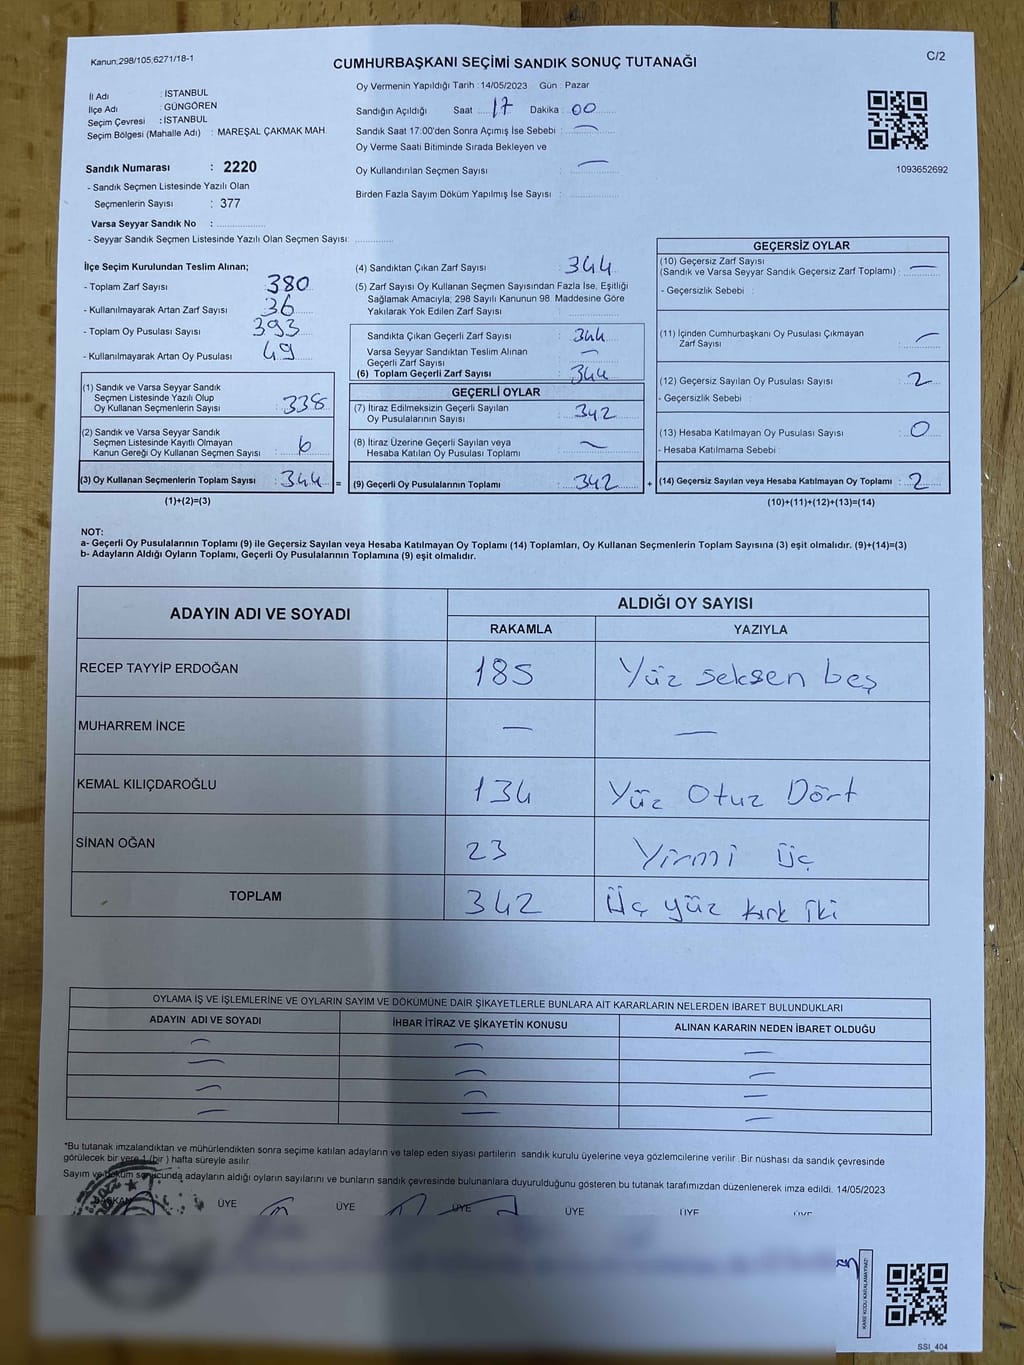 Kanun;298/105;6271/18-1
CUMHURBAŞKANI SEÇİMİ SANDIK SONUÇ TUTANAĞI
C/2
İl Adı : İSTANBUL
İlçe Adı : GÜNGÖREN
Seçim Çevresi : İSTANBUL
Seçim Bölgesi (Mahalle Adı) : MAREŞAL ÇAKMAK MAH.
Sandık Numarası : 2220
- Sandık Seçmen Listesinde Yazılı Olan
Seçmenlerin Sayısı : 377
Varsa Seyyar Sandık No :
- Seyyar Sandık Seçmen Listesinde Yazılı Olan Seçmen Sayısı:
Oy Vermenin Yapıldığı Tarih : 14/05/2023 Gün : Pazar
Sandığın Açıldığı Saat : 17 Dakika : 00
Sandık Saat 17:00'den Sonra Açımış İse Sebebi : —
Oy Verme Saati Bitiminde Sırada Bekleyen ve
Oy Kullandırılan Seçmen Sayısı : —
Birden Fazla Sayım Döküm Yapılmış İse Sayısı :
1093652692
İlçe Seçim Kurulundan Teslim Alınan;
- Toplam Zarf Sayısı : 380
- Kullanılmayarak Artan Zarf Sayısı : 36
- Toplam Oy Pusulası Sayısı : 393
- Kullanılmayarak Artan Oy Pusulası : 49
(1) Sandık ve Varsa Seyyar Sandık
Seçmen Listesinde Yazılı Olup
Oy Kullanan Seçmenlerin Sayısı : 338
(2) Sandık ve Varsa Seyyar Sandık
Seçmen Listesinde Kayıtlı Olmayan
Kanun Gereği Oy Kullanan Seçmen Sayısı : 6
(3) Oy Kullanan Seçmenlerin Toplam Sayısı : 344 =
(1)+(2)=(3)
(4) Sandıktan Çıkan Zarf Sayısı : 344
(5) Zarf Sayısı Oy Kullanan Seçmen Sayısından Fazla İse, Eşitliği
Sağlamak Amacıyla; 298 Sayılı Kanunun 98. Maddesine Göre
Yakılarak Yok Edilen Zarf Sayısı :
Sandıkta Çıkan Geçerli Zarf Sayısı : 344
Varsa Seyyar Sandıktan Teslim Alınan
Geçerli Zarf Sayısı : —
(6) Toplam Geçerli Zarf Sayısı : 344
GEÇERLİ OYLAR
(7) İtiraz Edilmeksizin Geçerli Sayılan
Oy Pusulalarının Sayısı : 342
(8) İtiraz Üzerine Geçerli Sayılan veya
Hesaba Katılan Oy Pusulası Toplamı : —
(9) Geçerli Oy Pusulalarının Toplamı : 342 +
GEÇERSİZ OYLAR
(10) Geçersiz Zarf Sayısı
(Sandık ve Varsa Seyyar Sandık Geçersiz Zarf Toplamı) : —
- Geçersizlik Sebebi :
(11) İçinden Cumhurbaşkanı Oy Pusulası Çıkmayan
Zarf Sayısı : —
(12) Geçersiz Sayılan Oy Pusulası Sayısı : 2
- Geçersizlik Sebebi :
(13) Hesaba Katılmayan Oy Pusulası Sayısı : 0
- Hesaba Katılmama Sebebi :
(14) Geçersiz Sayılan veya Hesaba Katılmayan Oy Toplamı : 2
(10)+(11)+(12)+(13)=(14)
NOT:
a- Geçerli Oy Pusulalarının Toplamı (9) ile Geçersiz Sayılan veya Hesaba Katılmayan Oy Toplamı (14) Toplamları, Oy Kullanan Seçmenlerin Toplam Sayısına (3) eşit olmalıdır. (9)+(14)=(3)
b- Adayların Aldığı Oyların Toplamı, Geçerli Oy Pusulalarının Toplamına (9) eşit olmalıdır.
ADAYIN ADI VE SOYADI
ALDIĞI OY SAYISI
RAKAMLA YAZIYLA
RECEP TAYYİP ERDOĞAN 185 Yüz seksen beş
MUHARREM İNCE — —
KEMAL KILIÇDAROĞLU 134 Yüz Otuz Dört
SİNAN OĞAN 23 Yirmi üç
TOPLAM 342 Üç yüz kırk iki
OYLAMA İŞ VE İŞLEMLERİNE VE OYLARIN SAYIM VE DÖKÜMÜNE DAİR ŞİKAYETLERLE BUNLARA AİT KARARLARIN NELERDEN İBARET BULUNDUKLARI
ADAYIN ADI VE SOYADI İHBAR İTİRAZ VE ŞİKAYETİN KONUSU ALINAN KARARIN NEDEN İBARET OLDUĞU
— — —
— — —
— — —
— — —
*Bu tutanak imzalandıktan ve mühürlendikten sonra seçime katılan adayların ve talep eden siyasi partilerin sandık kurulu üyelerine veya gözlemcilerine verilir. Bir nüshası da sandık çevresinde
görülecek bir yere 1 (bir ) hafta süreyle asılır.
Sayım ve döküm sonucunda adayların aldığı oyların sayılarını ve bunların sandık çevresinde bulunanlara duyurulduğunu gösteren bu tutanak tarafımızdan düzenlenerek imza edildi. 14/05/2023
BAŞKAN ÜYE ÜYE ÜYE ÜYE ÜYE ÜYE
KARE KODU KARALAMAYINIZ!
SSI_404